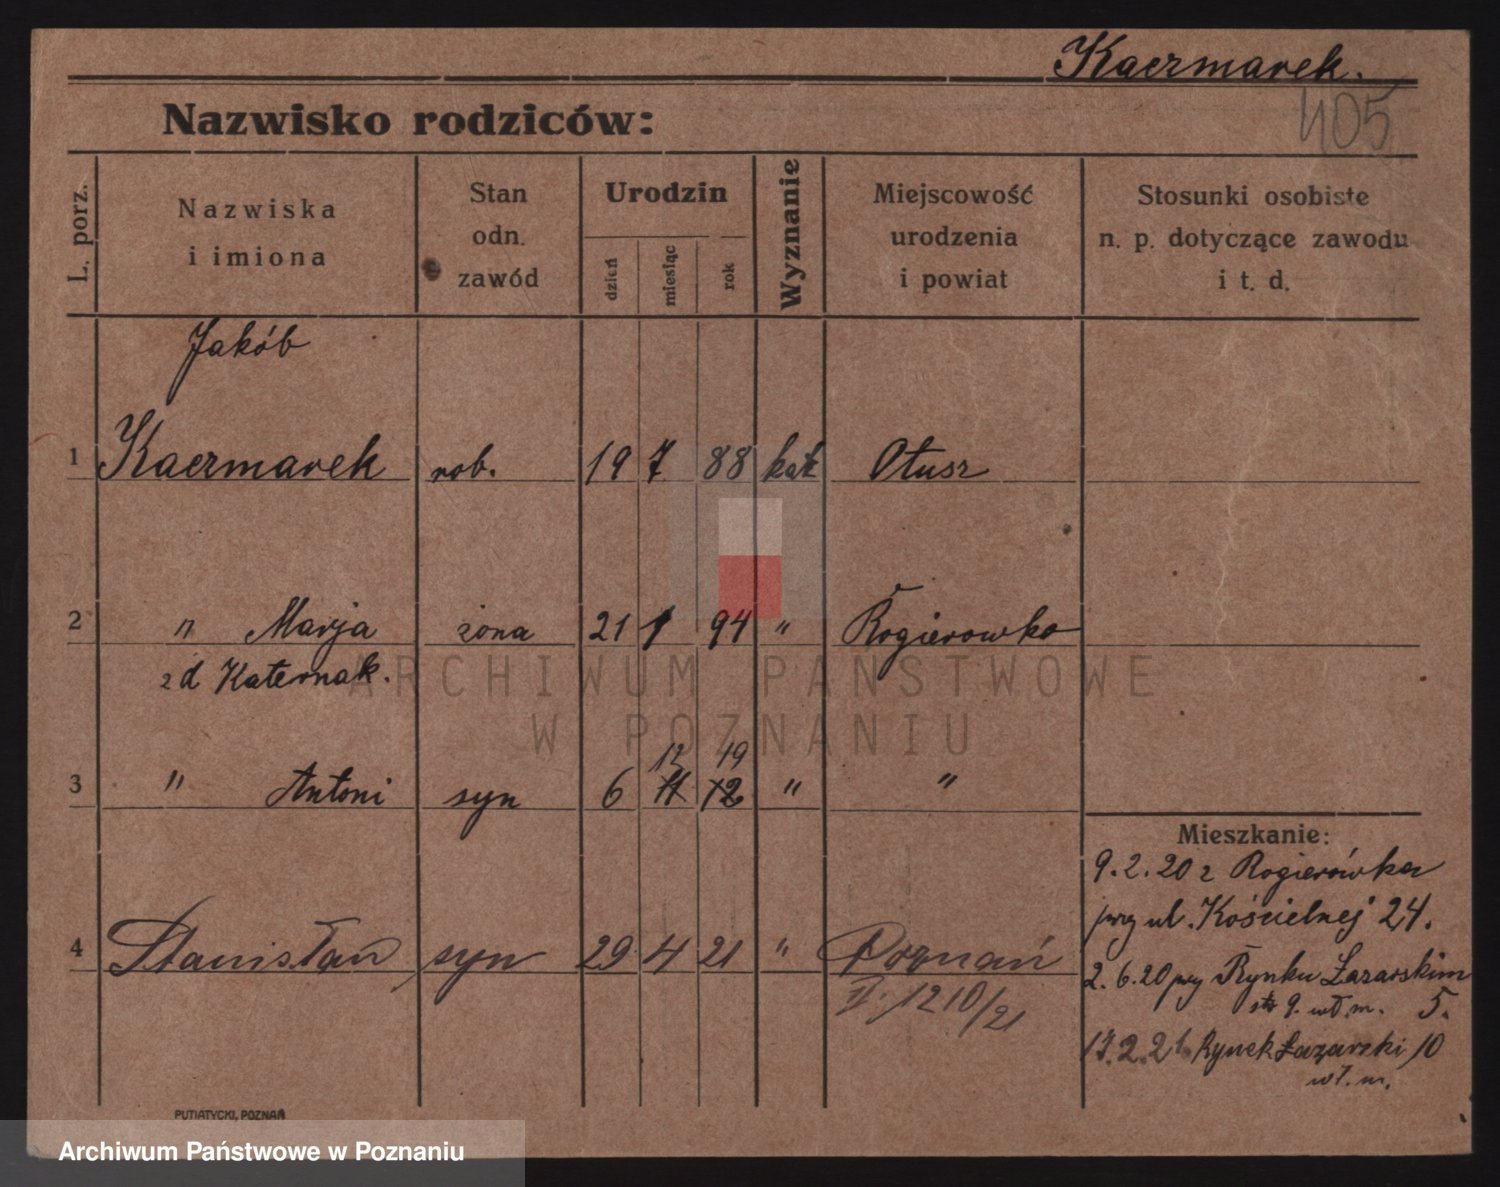 Kaczmarek.
405
Nazwisko rodziców:
L. porz.
Nazwiska
i imiona
Stan
odn.
zawód
Urodzin
dzień
miesiąc
rok
Wyznanie
Miejscowość
urodzenia
i powiat
Stosunki osobiste
n. p. dotyczące zawodu
i t. d.
Jakób
1 Kaczmarek rob. 19 7 88 kat Otusz
2 " Marja żona 21 1 94 " Rogierowko
z d Katernak.
12 19
3 " Antoni syn 6 11 12 " "
Mieszkanie:
9.2.20 z Rogierówka
przy ul. Kościelnej 24.
4 Stanisław syn 29 4 21 " Poznań
2.6.20 przy Rynku Łazarskim
9. wł. m. 5.
1210/21
17.2.21 Rynek Łazarski 10
wł. m.
PUTIATYCKI, POZNAŃ
ARCHIWUM PAŃSTWOWE
W POZNANIU
Archiwum Państwowe w Poznaniu